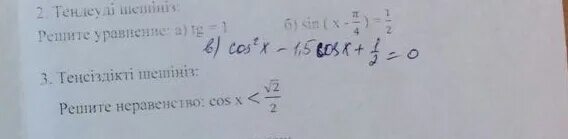 2. Теңдеуді шешіңіз:
Решите уравнение: а) tg = 1 б) sin ( x - π/4 ) = 1/2
в) cos²x - 1,5 cosx + 1/2 = 0
3. Теңсіздікті шешіңіз:
Решите неравенство: cos x < √2/2